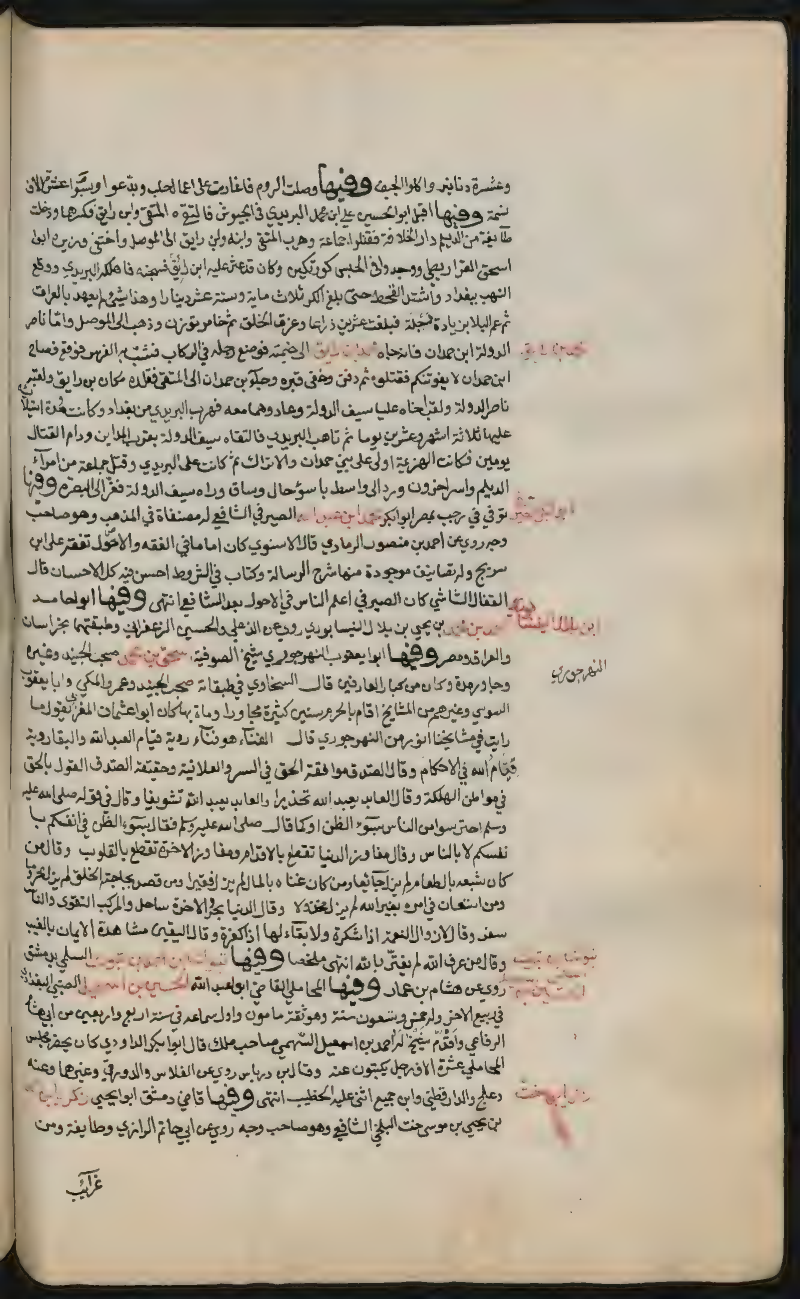 وعشرة دنانير واكلوا الجيف وفيها وصلت الروم فاغارت على اعمال حلب وبدعوا وسبوا عشرة الاف
نسمة وفيها اقبل ابو الحسين علي ابن محمد البريدي في الجيوش فالتقاه المتقي وابن رايق فكسرهما ودخلت
طايفة من الديلم دار الخلافة فقتلوا جماعة وهرب المتقي وابنه وابن رايق الى الموصل واختفى وزيره ابو
اسحق القراريطي ووجدوا في الحبس كورتكين وكان قد عثر عليه ابن رايق فسجنه فاهلكه البريدي ووقع
النهب ببغداد واشتد القحط حتى بلغ الكر ثلاث ماية وستة عشر دينارا وهذا شيء لم يعهد بالعراق
ثم عم البلا بزيادة دجلة فبلغت عشرين ذراعا وغرق الخلق ثم خامر توزون وذهب الى الموصل واما ناصر
الدولة ابن حمدان فانه جاه محمد بن رايق الى خيمته فوضع رجله في الركاب فشب به الفرس فوقع فصاح
ابن حمدان لا يفوتنكم فقتلوه ثم دفن وعفي قبره وجاء ابن حمدان الى المتقي فقلده مكان بن رايق ولقبه
ناصر الدولة ولقب اخاه عليا سيف الدولة وعاد وهما معه فهرب البريدي من بغداد وكانت مدة استيلائه
عليها ثلاثة اشهر وعشرين يوما ثم تاهب البريدي فالتقاه سيف الدولة بقرب المداين ودام القتال
يومين فكانت الهزيمة اولى على بني حمدان والاتراك ثم كانت على البريدي وقتل جماعة من امراء
الديلم واسر اخرون ورد الى واسط باسوء حال وساق وراه سيف الدولة ففر الى البصرة وفيها
توفي في رجب بمصر ابو بكر محمد ابن عبد الله الصيرفي الشافعي له مصنفاة في المذهب وهو صاحب
وجه روى عن احمد بن منصور الرمادي قال الاسنوي كان اماما في الفقه والاصول تفقه على ابن
سريج وله تصانيف موجودة منها شرح الرسالة وكتاب في الشروط احسن فيه كل الاحسان قال
القفال الشاشي كان الصيرفي اعلم الناس في الاصول بعد الشافعي انتهى وفيها ابو حامد
احمد بن محمد بن يحيى بن بلال النيسابوري روى عن الذهلي والحسين الزعفراني وطبقتهما بخراسان
والعراق ومصر وفيها ابو يعقوب النهرجوري شيخ الصوفية اسحق بن محمد صحب الجنيد وغيره
وجاور مدة وكان من كبار العارفين قال السخاوي في طبقاته صحب الجنيد وعمرو المكي وابا يعقوب
السوسي وغيرهم من المشايخ اقام بالحرم سنين كثيرة مجاورا وماة بها كان ابو عثمان المغربي يقول ما
رايت في مشايخنا انور من النهرجوري قال الفناء هو فناء روية قيام العبد لله والبقا روية
قيام الله في الاحكام وقال الصدق موافقة الحق في السر والعلانية وحقيقة الصدق القول بالحق
في مواطن الهلكة وقال العابد يعبد الله تحذيرا والعابد يعبد الله تشويفا وقال في قوله صلى الله عليه
وسلم احترسوا من الناس بسوء الظن او كما قال صلى الله عليه وسلم فقال بسوء الظن في انفسكم با
نفسكم لا بالناس وقال مفاوز الدنيا تقطع بالاقدام ومفاوز الاخرة تقطع بالقلوب وقال من
كان شبعه بالطعام لم يزل جائعا ومن كان غناه بالمال لم يزل فقيرا ومن قصد بحاجته الخلق لم يزل محروما
ومن استعان في امره بغير الله لم يزل مخذولا وقال الدنيا بحر والاخرة ساحل والمركب التقوى والناس
سفر وقال لا زوال لنعمة اذا شكرة ولا بقاء لها اذا كفرة وقال اليقين مشاهدة الايمان بالغيب
وقال من عرف الله لم يغتر بالله انتهى ملخصا وفيها تبوك بن احمد بن تبوك السلمي بدمشق
روى عن هشام بن عمار وفيها المحاملي القاضي ابو عبد الله الحسين بن اسمعيل الضبي البغدادي
في ربيع الاخر وله خمس وتسعون سنة وهو ثقة مامون واول سماعه في سنة اربع واربعين من ابي هشام
الرفاعي واقدم شيخ له احمد بن اسمعيل السهمي صاحب ملك قال ابو بكر الداودي كان يحضر مجلس
المحاملي عشرة الاف رجل يكتبون عنه وقال ابن درباس روى عن الفلاس والدورقي وغيرهما وعنه
دعلج والدارقطني وابن جميع اثنى عليه الخطيب انتهى وفيها قاضي دمشق ابو يحيى زكريا بن احمد
بن يحيى بن موسى خت البلخي الشافعي وهو صاحب وجه روى عن ابي حاتم الرازي وطايفة ومن
غرايب
محمد بن رايق
ابو بكر الصيرفي
ابن بلال النيسابوري
النهرجوري
زكريا بن خت